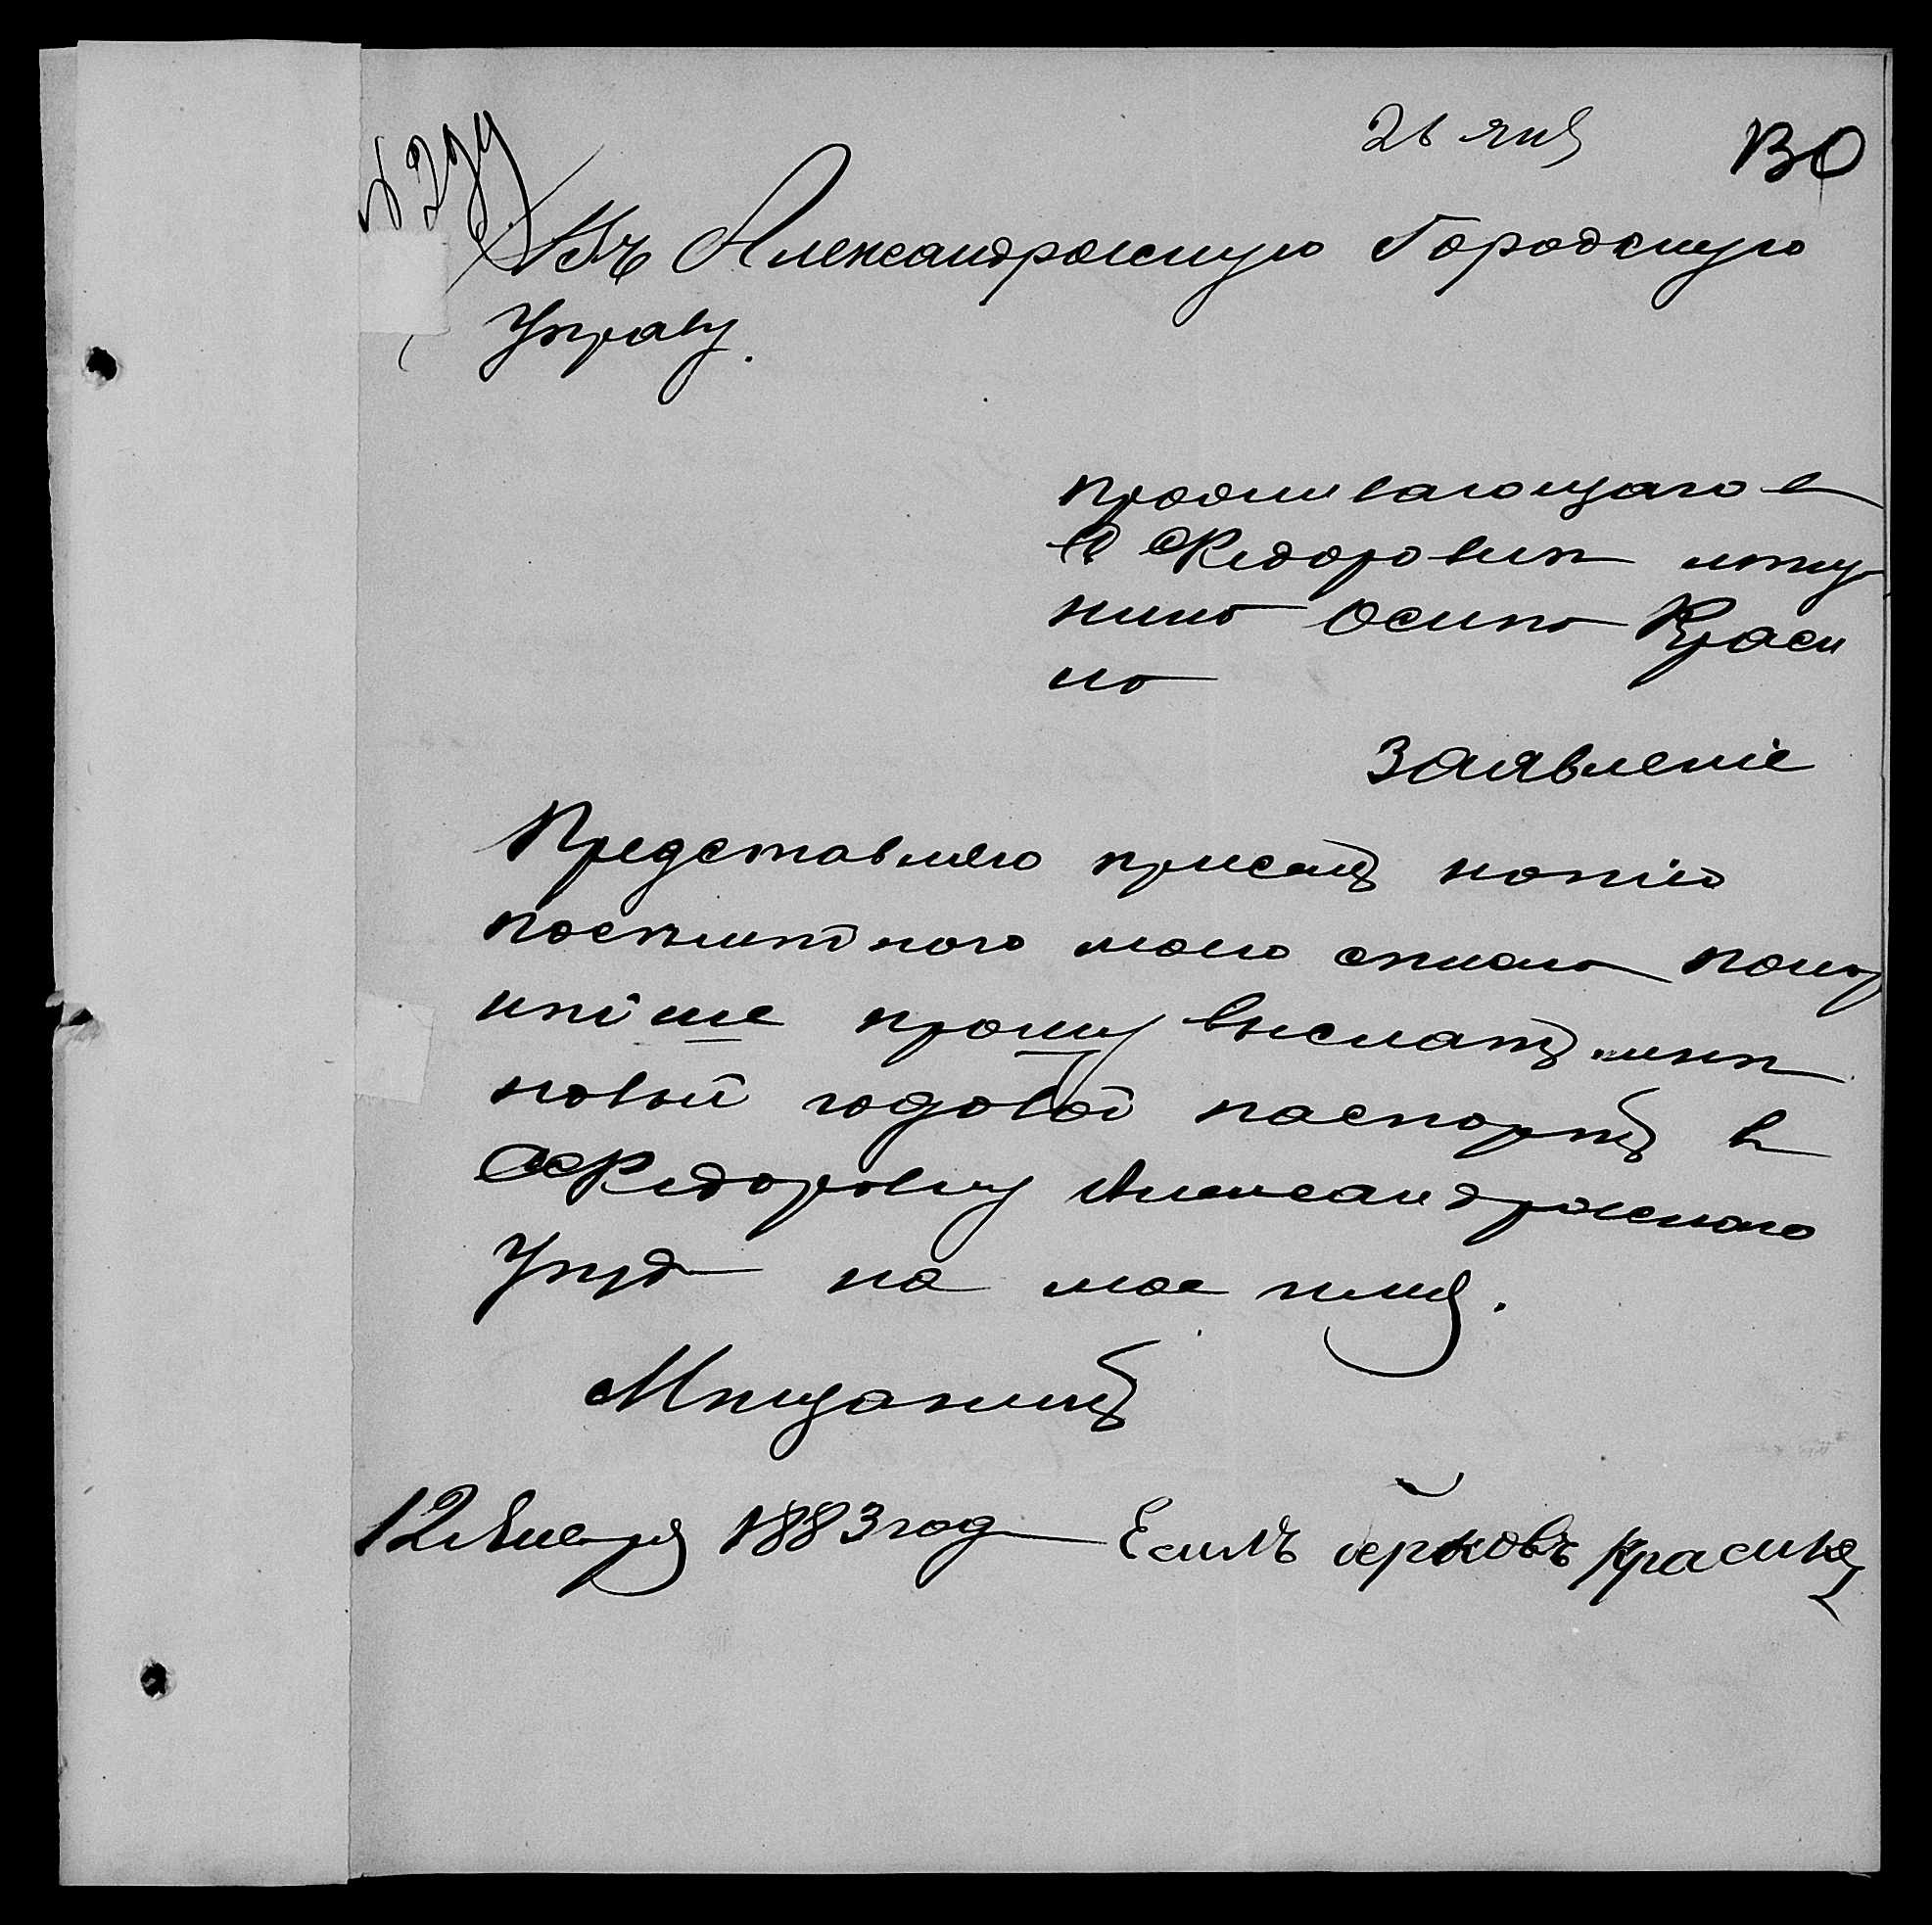 26 янв
ВО
№ 299
Въ Александровскую Городскую
Управу.
проживающаго в
С Федоровки
Осипа Краси
на
Заявленіе
Представляю присемъ копію
посемейного моего списка поко
нѣише прошу выслать мнѣ
новый годовой паспортъ в
Федоровку Александровского
Уезда на мое имя.
Мещанинъ
12 Января 1883 год
Есипъ Берковъ Красикъ